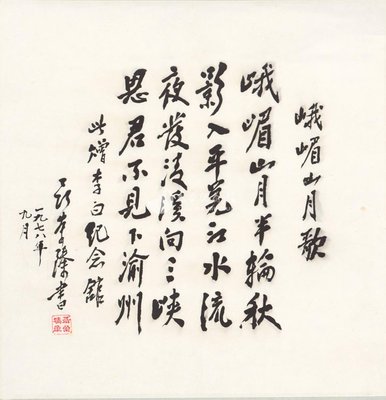 峨嵋山月歌
峨嵋山月半輪秋
影入平羌江水流
夜發清溪向三峡
思君不見下渝州
此赠李白纪念舘
聂荣臻書
一九七八年
九月